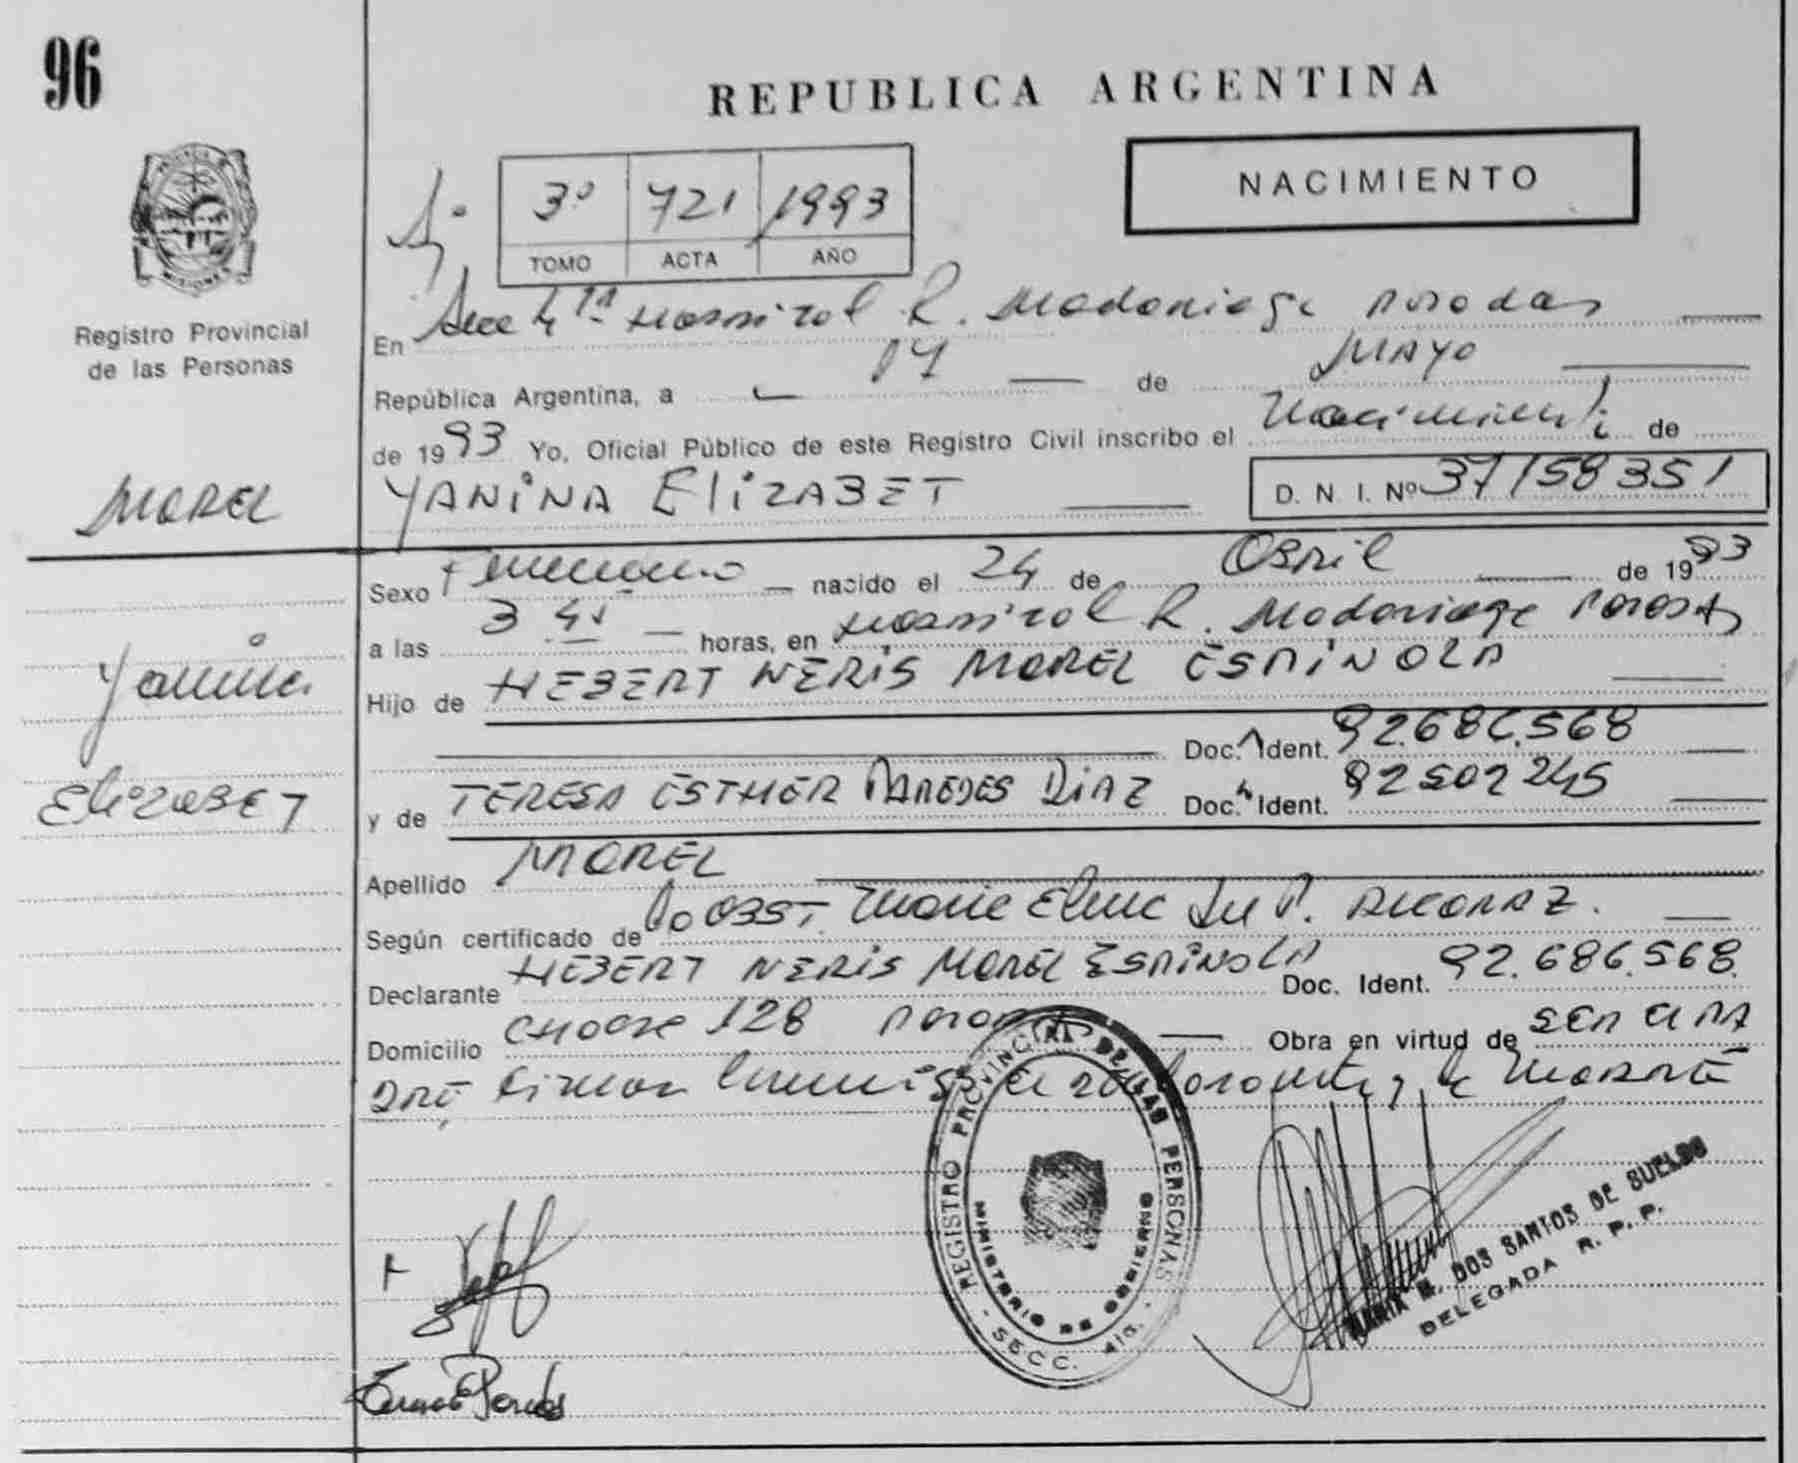 96
REPUBLICA ARGENTINA
NACIMIENTO
3º 721 1993
TOMO ACTA AÑO
Registro Provincial
de las Personas
En Secc 4ta Hospital R. Madariaga Posadas
República Argentina, a 14 de MAYO
de 1993 Yo, Oficial Público de este Registro Civil inscribo el Nacimiento de
MOREL
YANINA ELIZABET D. N. I. Nº 37158351
Sexo Femenino nacido el 24 de ABRIL de 1993
a las 3 horas, en Hospital R. Madariaga Posadas
Yanina
Hijo de HEBERT NERIS MOREL ESPINOLA
Doc. Ident. 92.686.568
ELIZABET
y de TERESA ESTHER PAREDES DIAZ Doc. Ident. 92502245
Apellido MOREL
Según certificado de OBST. ALCARAZ.
Declarante HEBERT NERIS MOREL ESPINOLA Doc. Ident. 92.686.568
Domicilio 128 Obra en virtud de SER EL PA
DRE, firman la madre
REGISTRO PROVINCIAL DE LAS PERSONAS
MINISTERIO DE GOBIERNO
SECC. 4ta.
MARIA M. DOS SANTOS DE SUELDO
DELEGADA R. P. P.